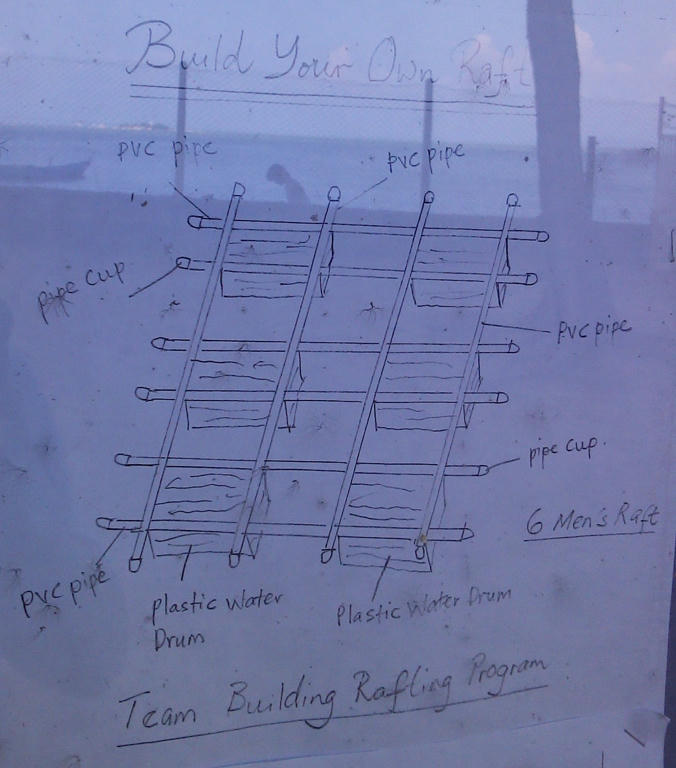 Build Your Own Raft
PVC pipe
PVC pipe
pipe cup
PVC pipe
pipe cup.
6 Men's Raft
PVC pipe
Plastic Water
Drum
Plastic Water Drum
Team Building Rafting Program